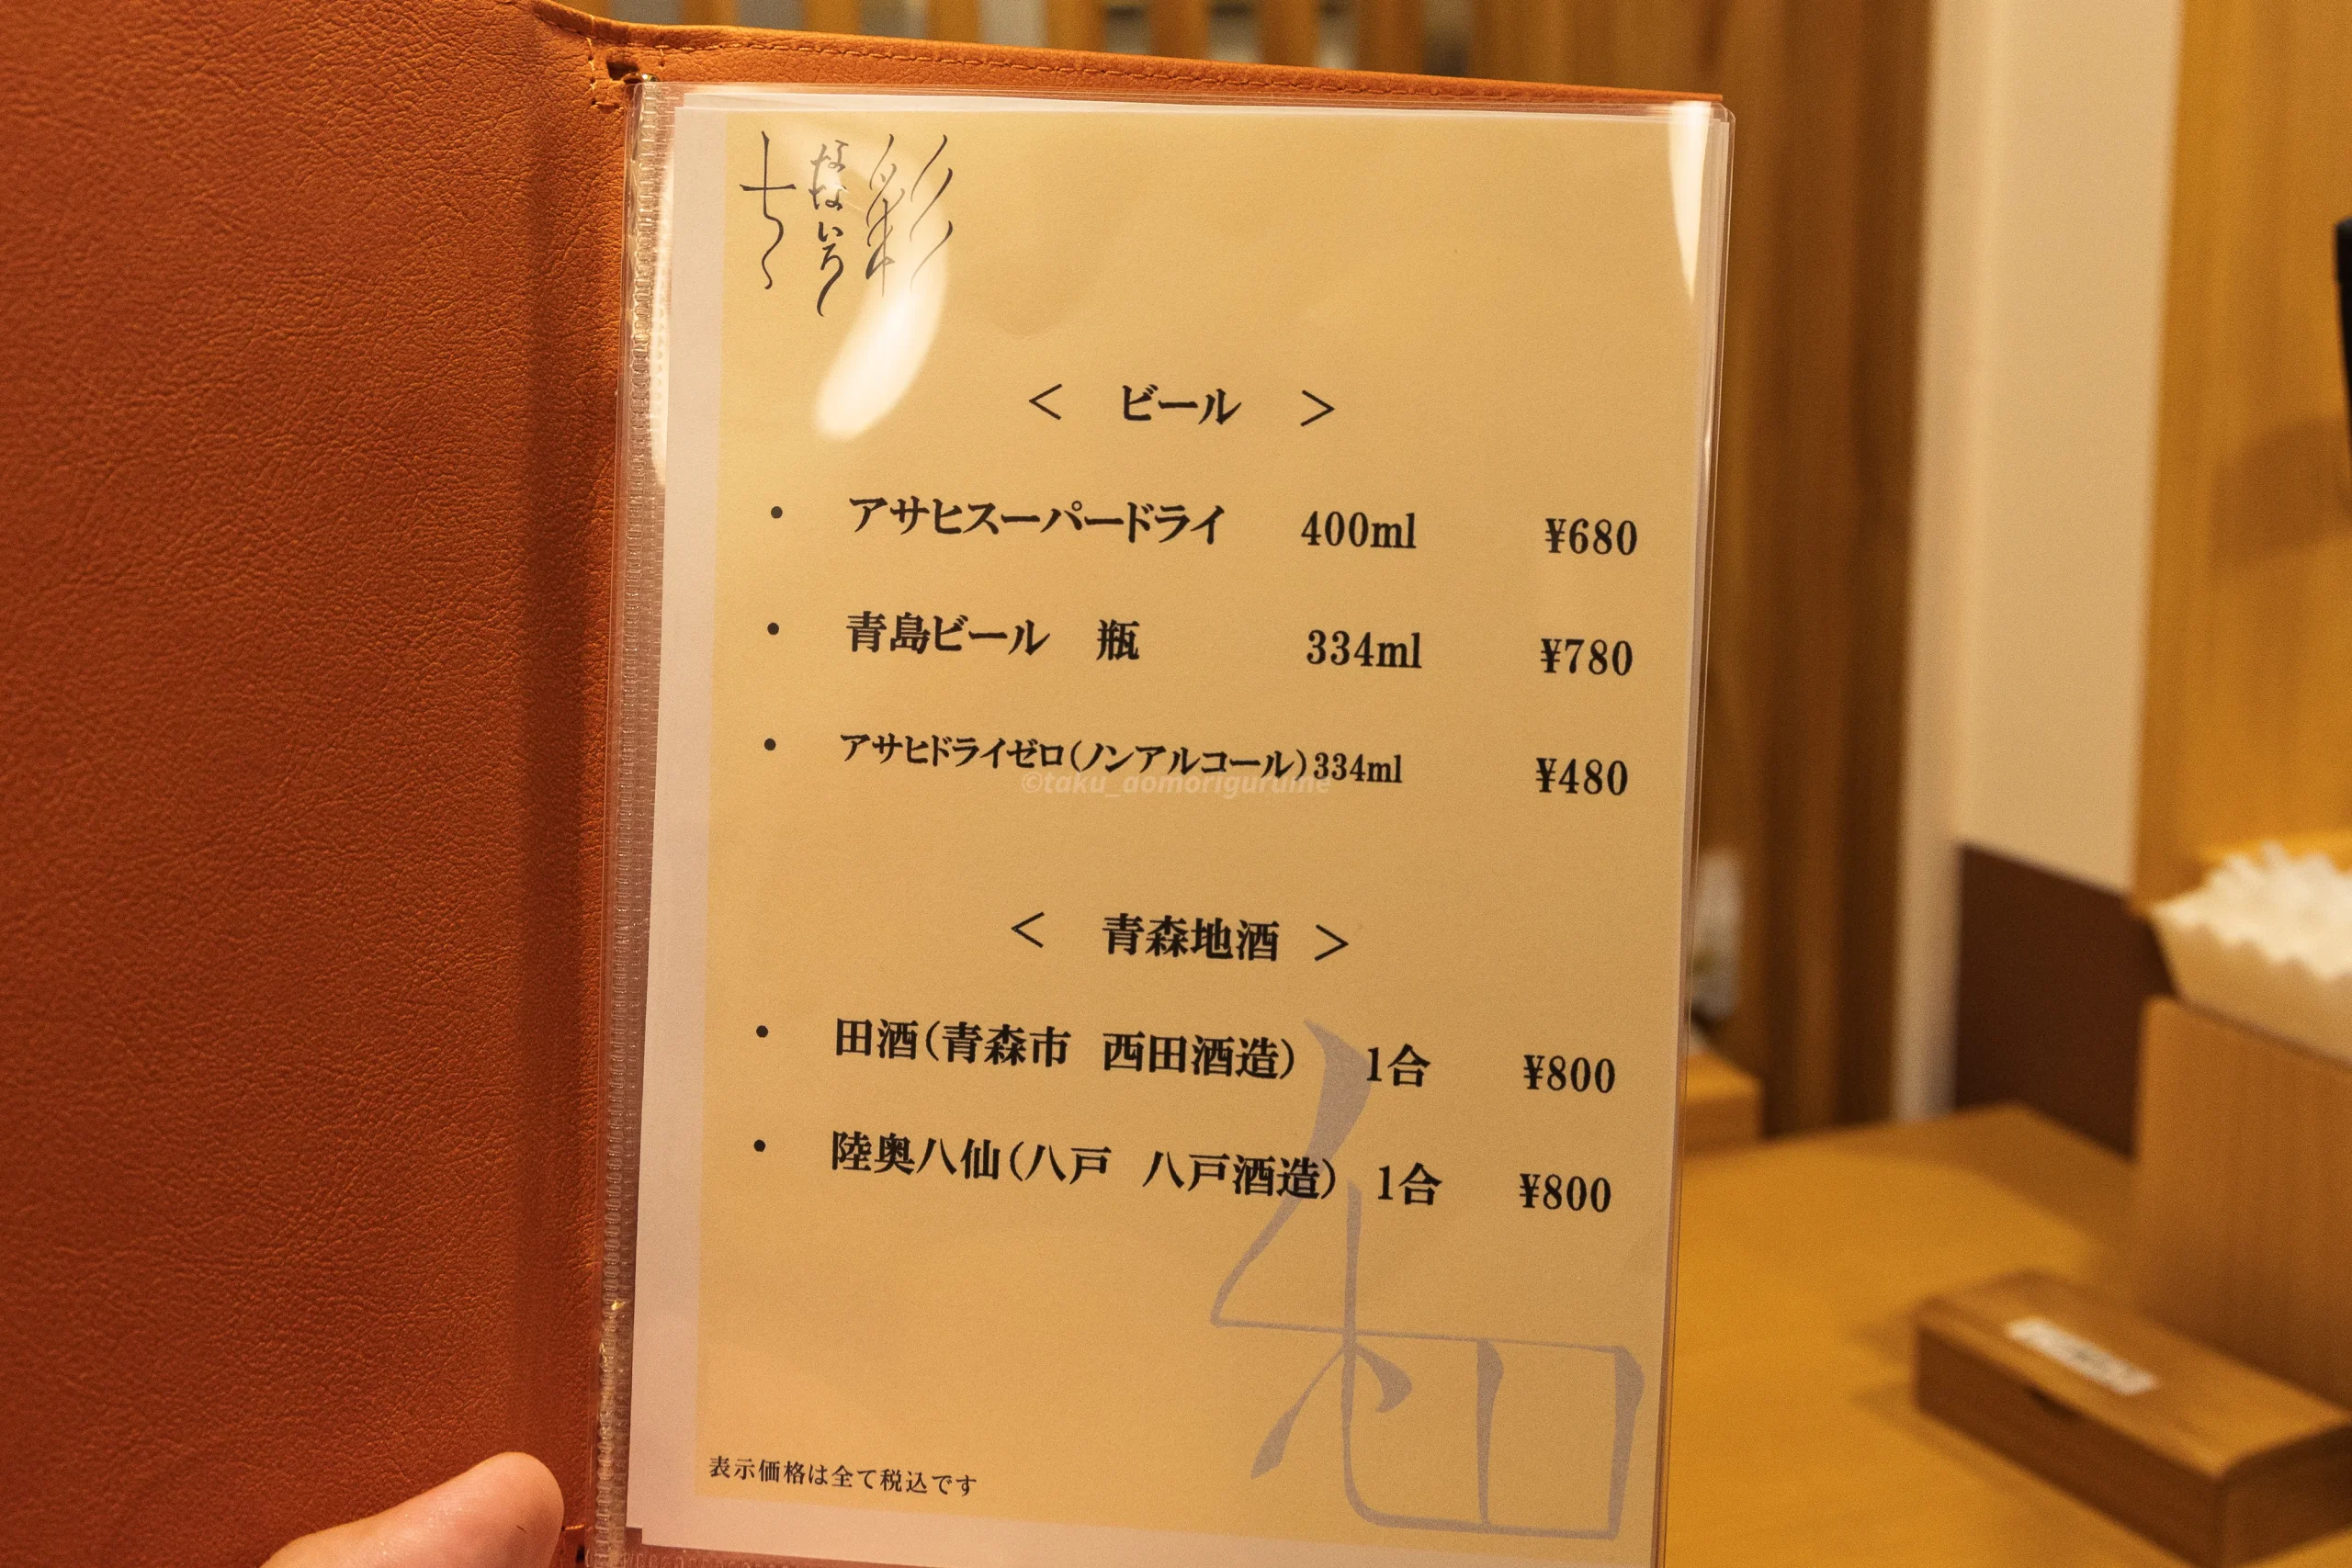 七彩
なないろ
＜ ビール ＞
・ アサヒスーパードライ 400ml ¥680
・ 青島ビール 瓶 334ml ¥780
・ アサヒドライゼロ(ノンアルコール)334ml ¥480
©taku_aomorigurume
＜ 青森地酒 ＞
・ 田酒(青森市 西田酒造) 1合 ¥800
・ 陸奥八仙(八戸 八戸酒造) 1合 ¥800
和
表示価格は全て税込です